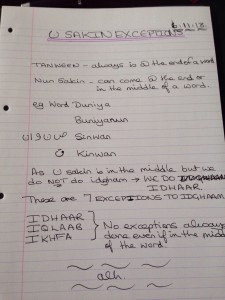 6-11-13
ن SAKIN EXCEPTIONS
TANWEEN - always is @ the end of a word
Nun Sakin - can come @ the end or
in the middle of a word.
eg Word Duniya
Bunyanun
Sinwan
Kinwan
As ن sakin is in the middle but we
do NOT do idgham → WE DO
IDHAAR
These are 7 EXCEPTIONS TO IDGHAAM
IDHAAR
IQLAAB
IKHFA
No exceptions always
done even if in the middle
of the word.
alh.